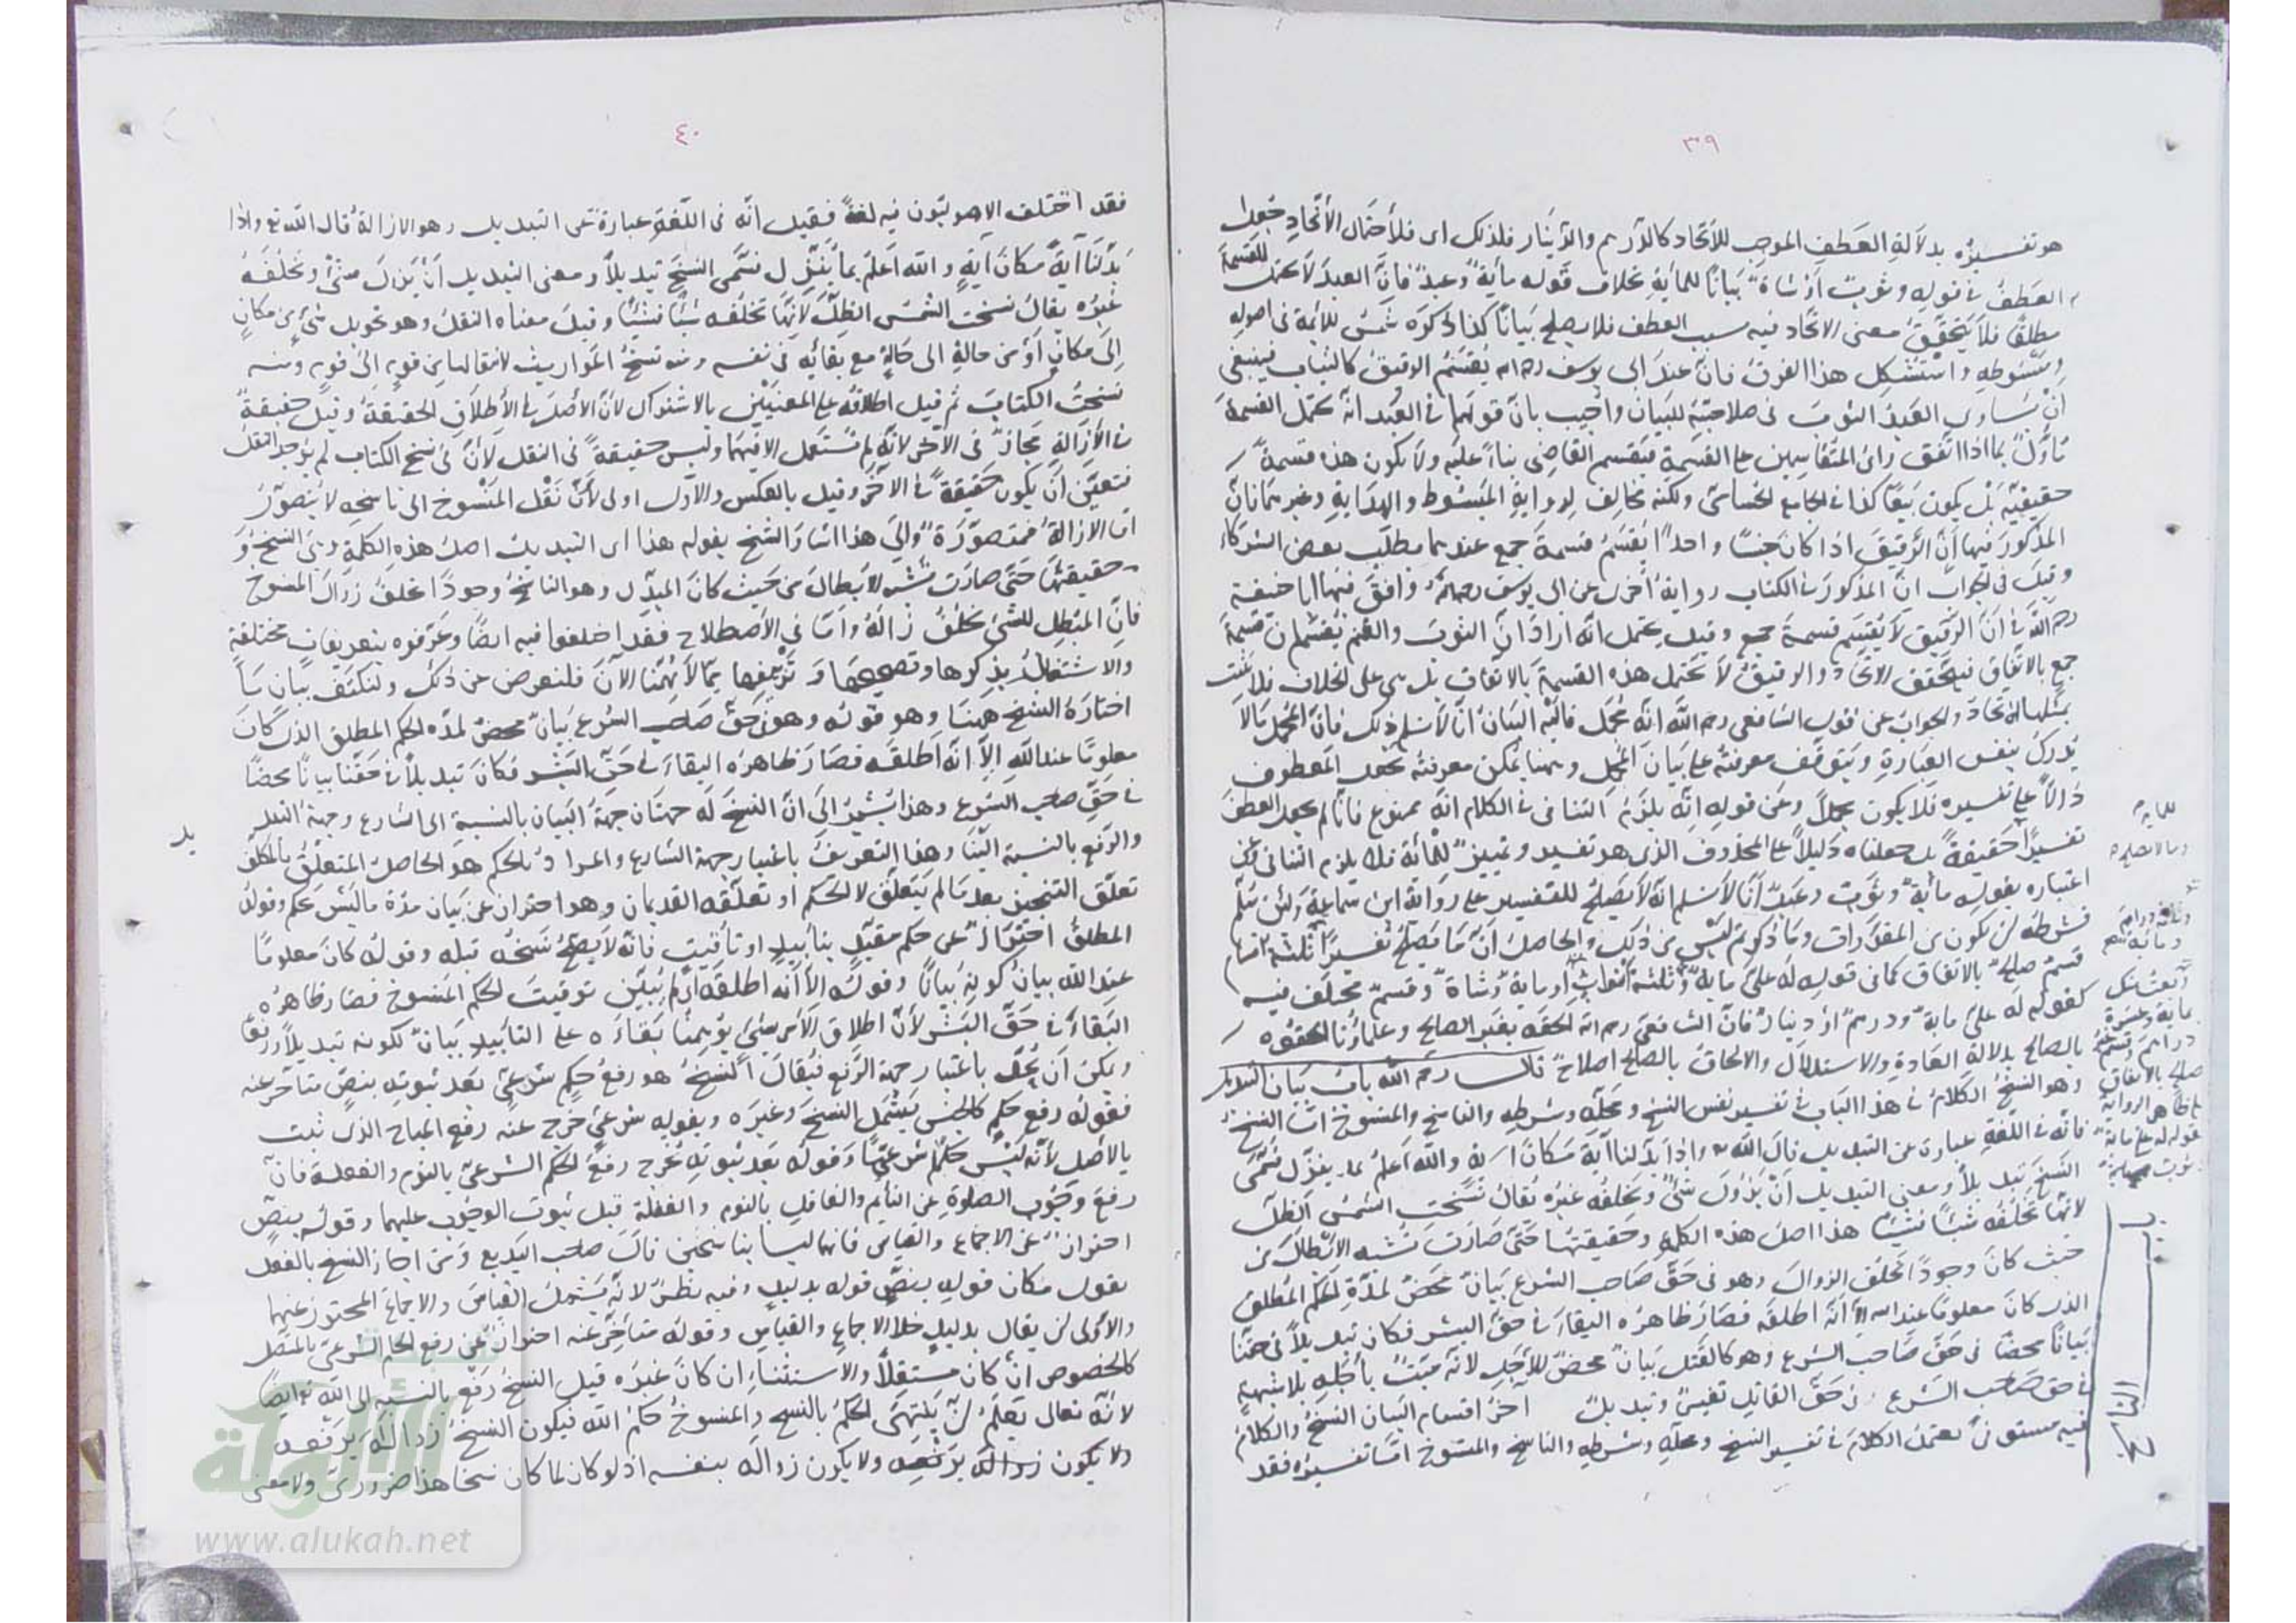 ٣٩
هو تفسيره بدلالة العطف الموجب للاتحاد كالدرهم والدينار فلذلك اى فلاحتمال الاتحاد جعل
العطف فى قوله وثوب او شاة بيانا للماية بخلاف قوله ماية وعبد فان العبد لا يحتمل القسمة
مطلقا فلا يتحقق معنى الاتحاد فيه بسبب العطف فلا يصلح بيانا كذا ذكره شمس الائمة فى اصوله
ومبسوطه واستشكل هذا الفرق فان عند ابى يوسف رحمه الله يقسم الرقيق كالثياب فينبغى
ان يساوى العبد الثوب فى صلاحيته للبيان واجيب بان قولهما فى العبد انه يحتمل القسمة
تاول بما اذا اتفق راى المتقاسمين على القسمة فيقسم القاضى بناء عليه ولا يكون هذه قسمة
حقيقية بل يكون بيعا كذا فى الجامع الحسامى ولكنه مخالف لرواية المبسوط والهداية وغيرهما فان
المذكور فيها ان الرقيق اذا كان جنسا واحدا يقسم قسمة جمع عندهما بطلب بعض الشركاء
وقيل فى الجواب ان المذكور فى الكتاب رواية اخرى عن ابى يوسف رحمه الله وافق فيها ابا حنيفة
رحمه الله فى ان الرقيق لا يقسم قسمة جمع وقيل يحتمل انه اراد ان الثوب والغنم يقسمان قسمة
جمع بالاتفاق فيتحقق الاتحاد والرقيق لا يحتمل هذه القسمة بالاتفاق بل هى على الخلاف فلا يثبت
بمثلها الاتحاد والجواب عن قول الشافعى رحمه الله انه مجمل فاليه البيان انا لا نسلم ذلك فان المجمل ما لا
يدرك بنفس العبارة ويتوقف معرفته على بيان المجمل وههنا يمكن معرفته بجعل المعطوف
دالا على تفسيره فلا يكون مجملا وعن قوله انه يلزم التنافى فى الكلام انه ممنوع فانا لم نجعل العطف
تفسيرا حقيقة بل جعلناه دليلا على المحذوف الذى هو تفسير وتمييز للمائة فلا يلزم التنافى
اعتباره بقوله مائة وثوب وعبد انا لا نسلم انه لا يصلح للتفسير على رواية ابن سماعة ولئن سلم
فشرطه ان يكون من المقدرات وما ذكرتم ليس من ذلك والحاصل ان ما يصلح تفسيرا ثلثة اقسام
قسم صالح بالاتفاق كما فى قوله له على ماية وثلثة اثواب او ماية وشاة وقسم مختلف فيه
كقوله له على ماية ودرهم او دينار فان الشافعى رحمه الله الحقه بغير الصالح وعلماؤنا الحقوه
بالصالح بدلالة العادة والاستدلال والالحاق بالصالح اصلاح قال رحمه الله باب بيان التبديل
وهو النسخ الكلام فى هذا الباب فى تفسير نفس النسخ ومحله وشرطه والناسخ والمنسوخ اما النسخ
فانه فى اللغة عبارة عن التبديل قال الله تع واذا بدلنا آية مكان آية والله اعلم بما ينزل سمى
النسخ تبديلا ومعنى التبديل ان يزول شئ ويخلفه غيره يقال نسخت الشمس الظل
لانها تخلفه شيئا فشيئا هذا اصل هذه الكلمة وحقيقتها حتى صارت تشبه الابطال من
حيث كان وجودا يخلف الزوال وهو فى حق صاحب الشرع بيان محض لمدة الحكم المطلق
الذى كان معلوما عند الله الا انه اطلقه فصار ظاهره البقاء فى حق البشر فكان تبديلا فى حقنا
بيانا محضا فى حق صاحب الشرع وهو كالقتل بيان محض للاجل لانه ميت باجله بلا شبهة
فى حق صاحب الشرع وفى حق القاتل تغيير وتبديل آخر اقسام البيان النسخ والكلام
فيه يستوفى تعمل الكلام فى تفسير النسخ ومحله وشرطه والناسخ والمنسوخ اما تفسيره فقد
٤٠
فقد اختلف الاصوليون فيه لغة فقيل انه فى اللغة عبارة عن التبديل وهو الازالة قال الله تع واذا
بدلنا آية مكان آية والله اعلم بما ينزل سمى النسخ تبديلا ومعنى التبديل ان يزول شئ ويخلفه
غيره يقال نسخت الشمس الظل لانها تخلفه شيئا فشيئا وقيل معناه النقل وهو تحويل شئ من مكان
الى مكان او من حالة الى حالة مع بقائه فى نفسه ومنه تناسخ المواريث لانتقالها من قوم الى قوم ومنه
نسخت الكتاب ثم قيل اطلاقه على المعنيين بالاشتراك لان الاصل فى الاطلاق الحقيقة وقيل حقيقة
فى الازالة مجاز فى الآخر لانه لم يستعمل الا فيهما وليس حقيقة فى النقل لان فى نسخ الكتاب لم يوجد النقل
فتعين ان يكون حقيقة فى الآخر وقيل بالعكس والاول اولى لان نقل المنسوخ الى ناسخه لا يتصور
اما الازالة فمتصورة والى هذا اشار الشيخ بقوله هذا اى التبديل اصل هذه الكلمة وهى النسخ و
حقيقتها حتى صارت تشبه الابطال من حيث كان المبدل وهو الناسخ وجودا يخلف زوال المنسوخ
فان المبطل للشئ يخلف زواله واما فى الاصطلاح فقد اختلفوا فيه ايضا وعرفوه بتعريفات مختلفة
والاشتغال بذكرها وتصحيحها وتزييفها مما لا يهمنا الآن فلنعرض عن ذلك ولنكتف ببيان ما
اختاره الشيخ ههنا وهو قوله وهو فى حق صاحب الشرع بيان محض لمدة الحكم المطلق الذى كان
معلوما عند الله الا انه اطلقه فصار ظاهره البقاء فى حق البشر فكان تبديلا فى حقنا بيانا محضا
فى حق صاحب الشرع وهذا يشير الى ان النسخ له جهتان جهة البيان بالنسبة الى الشارع وجهة التبديل
والرفع بالنسبة الينا وهذا التعريف باعتبار جهة الشارع والمراد بالحكم هو الحاصل المتعلق بالمكلف
تعلق التنجيز بعد ما لم يتعلق لا الحكم او تعلقه القديمان وهو احتراز عن بيان مدة ما ليس بحكم وقوله
المطلق احتراز عن حكم مقيد بتأبيد او تأقيت فانه لا يصح نسخه قبله وقوله كان معلوما
عند الله بيان كونه بيانا وقوله الا انه اطلقه اى لم يبين توقيت الحكم المنسوخ فصار ظاهره
البقاء فى حق البشر لان اطلاق الامر بشئ يوهمنا بقاءه على التأبيد بيان لكونه تبديلا ورفعا
ويمكن ان يحد باعتبار جهة الرفع فيقال النسخ هو رفع حكم شرعى بعد ثبوته بنص متأخر عنه
فقوله رفع حكم كالجنس يشمل النسخ وغيره وبقوله شرعى خرج عنه رفع المباح الذى ثبت
بالاصل لانه ليس حكما شرعيا وقوله بعد ثبوته يخرج رفع الحكم الشرعى بالنوم والغفلة فان
رفع وجوب الصلوة عن النائم والغافل بالنوم والغفلة قبل ثبوت الوجوب عليهما وقوله بنص
احتراز عن الاجماع والقياس فانهما ليسا بناسخين قال صاحب البديع ومن اجاز النسخ بالفعل
يقول مكان قوله بنص قوله بدليل وفيه نظر لانه يشمل القياس والاجماع المحترز عنهما
والاولى ان يقال بدليل خلا الاجماع والقياس وقوله متأخر عنه احتراز عن رفع الحكم الشرعى بالمتصل
كالخصوص ان كان مستقلا والاستثناء ان كان غيره قيل النسخ رفع بالنسبة الى الله تع ايضا
لانه تعالى يعلم ان ينتهى الحكم بالنسخ والمنسوخ حكم الله فيكون النسخ زواله يرفعه
ولا يكون زواله يرفعه ولا يكون زواله بنفسه اذ لو كان لما كان نسخا هذا ضرورى ولا معنى
www.alukah.net